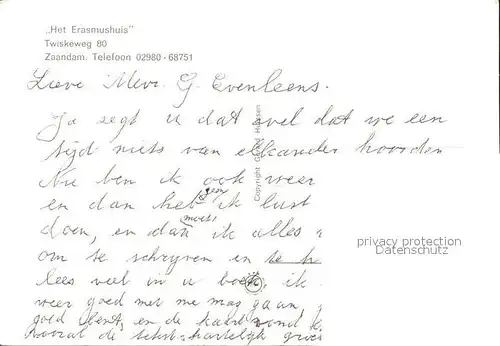 „Het Erasmushuis"
Twiskeweg 80
Zaandam. Telefoon 02980-68751
Lieve Mevr. G. Evenleens.
Ja zegt u dat wel dat we een
tijd niets van elkander hoorden
Nu ben ik ook weer
en dan heb geen ik lust
doen, en dan moet ik alles
om te schrijven en te h
lees veel in u boek, ik
weer goed met me mag gaan,
goed bent, en de kaart vond k
Vooral de tekst. hartelijk groet
Copyright Gerard Hansen
privacy protection
Datenschutz